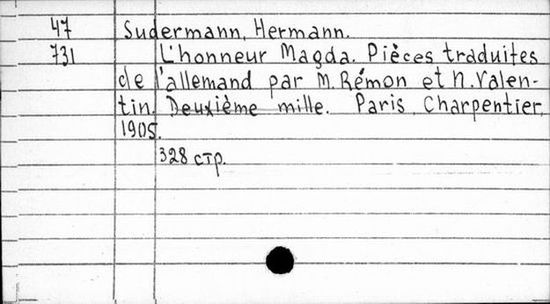 47 Sudermann, Hermann.
731 L'honneur Magda. Pièces traduites
de l'allemand par M. Rémon et N. Valen-
tin. Deuxième mille. Paris, Charpentier,
1905.
328 стр.